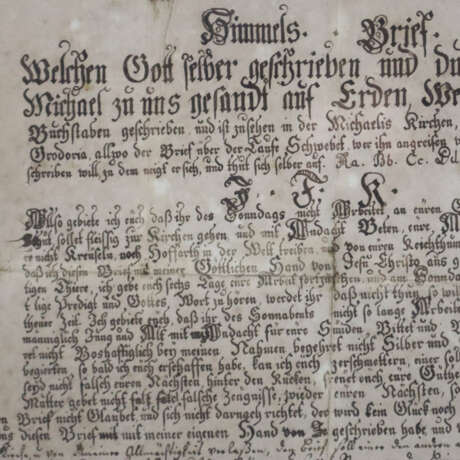 Himmels. Brief.
Welchen Gott selber geschrieben und du
Michael zu uns gesandt auf Erden, We
Buchstaben geschrieben, und ist zusehen in der Michaelis Kirchen,
Grodoria, allwo der Brief uber der Taufe Schwebet, wer ihn angreifen w
schreiben will zu dem neigt er sich, und thut sich selber auf. Aa. Bb. Cc. Dd
F. F. K.
Also gebiete ich euch daß ihr des Sonndags nicht Arbeitet an euren G
thut, sollet fleissig zur Kirchen gehen und mit Andacht Beten, eure
er nicht Kreuseln, noch Hoffarth in der Welt treiben von euren Reichthum
daß ich diesen Brief mit meiner Göttlichen Hand von Jesu Christo aus g
tigen Thiere, ich gebe euch sechs Tage eure Arbeit fortzu und am Sonnda
t lige Predigt und Gottes Wort zu hören, werdet ihr daß nicht thun, so wil
theuer Zeit. Ich gebiete euch daß ihr des Sonnabends nicht so lange Arbeite
männiglich Jung und Alt mit Andacht für eure Sünden Bittet und
ret nicht Boshafftiglich bey meinen Nahmen begehret nicht Silber und
begierten, so bald ich euch erschaffen habe, kan ich euch zerschmettern, einer sol
seyd nicht falsch euren Nächsten hinter den Rücken, euch eure Güthe
Mutter gebet nicht falsche Zeugnisse, wieder euren Nächsten, so
en Brief nicht Glaubet, und sich nicht darngch richtet, der wird kein Glück noch
uns diesen Brief mit meiner eigenen Hand von geschrieben habe, und w
von Allmächtigkeit verlassen, den brief soll einer den andern